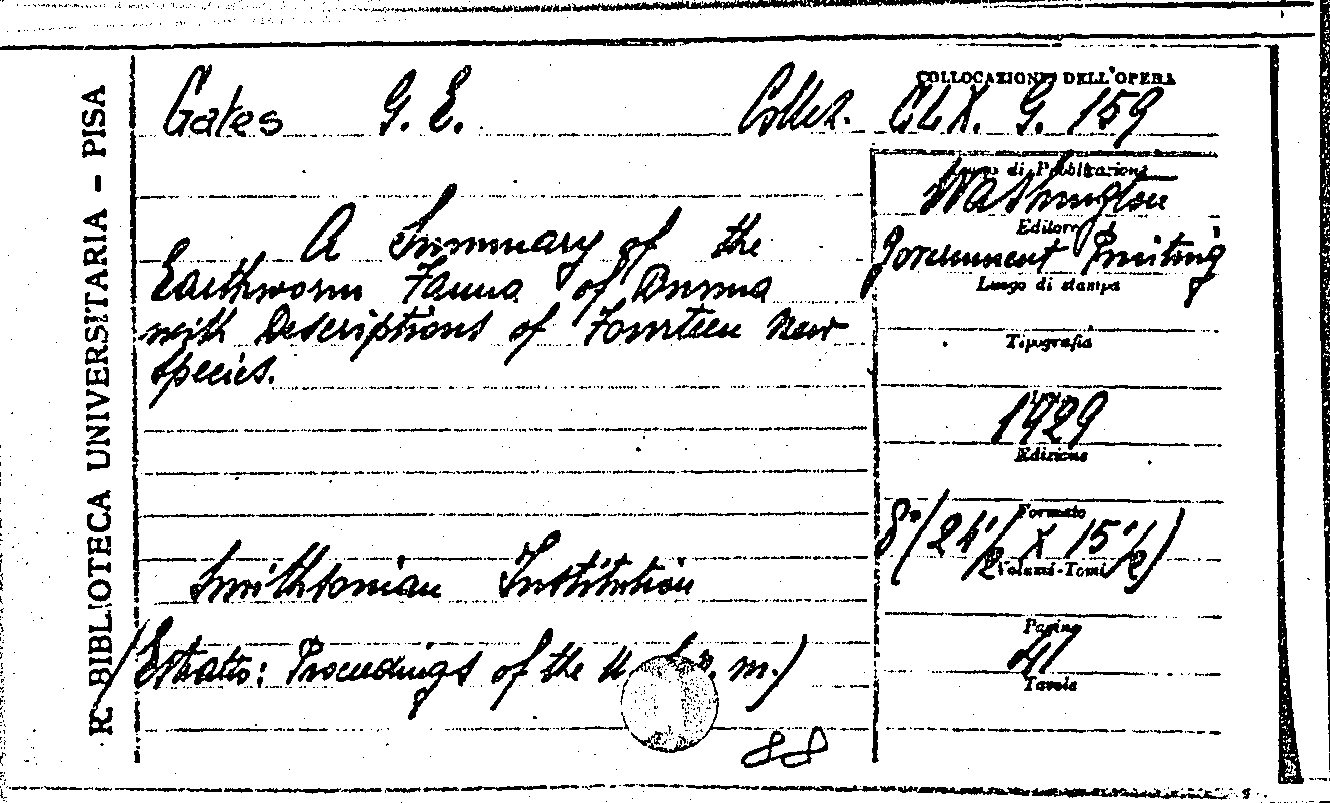 R. BIBLIOTECA UNIVERSITARIA - PISA
Gates G. E.
Collez. CLX. G. 159
COLLOCAZIONE DELL'OPERA
A Summary of the
Earthworm Fauna of Burma
with Descriptions of Fourteen New
Species.
Smithsonian Institution
(Estratto: Proceedings of the U. m.)
88
Washington
di Pubblicazione
Editore
Government Printing
Luogo di stampa
Tipografia
1929
Edizione
Formato
8° (24 1/2 X 15 1/2)
Volumi-Tomi
Pagine
41
Tavole